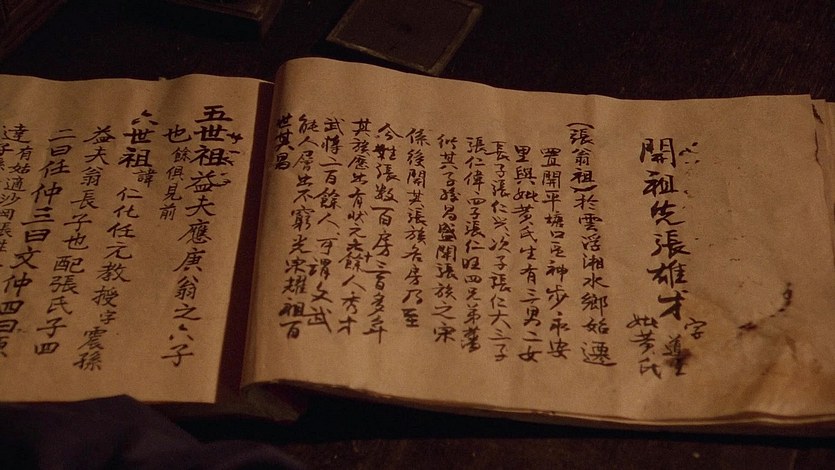 開祖先張雄才
字
妣黃氏
(張翁祖)於雲浮湘水鄉始遷
置開平塘口區神步永安
里與妣黃氏生有三男二女
長子張仁興次子張仁大三子
張仁偉四子張仁旺四兄弟
其子孫昌盛開張族之宗
係後開其張族各房乃至
今姓張數百房二百多年
其族應出有狀元 餘人秀才
武 二百餘人可謂文武
能人房出不窮光宗耀祖百
世其昌
五世祖益夫應庚翁之六子
也 餘俱見前
六世祖 諱仁化任元教授字震孫
益夫翁長子也配張氏子四
二曰任仲三曰文仲四曰
達 有姑適沙岡張